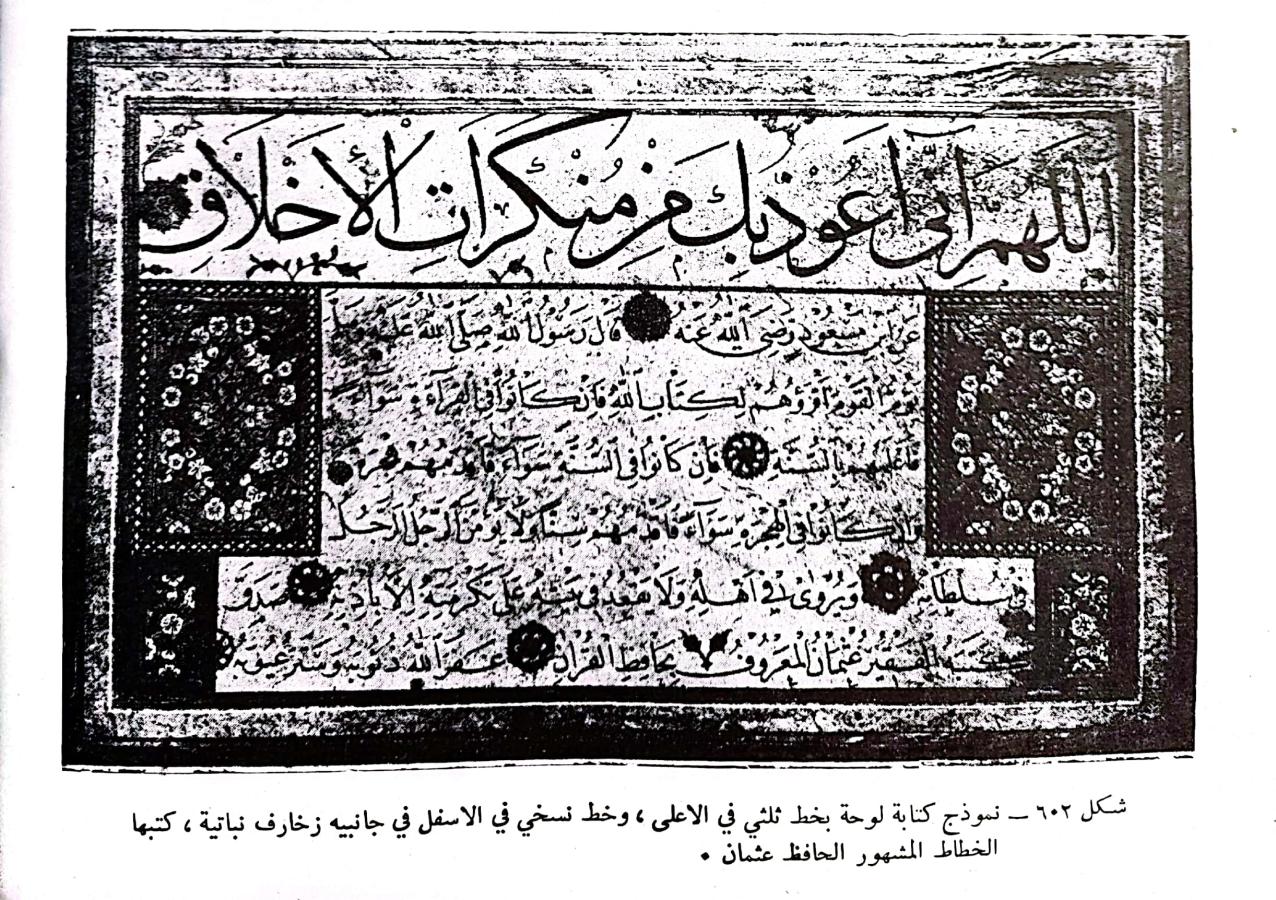 اللهم اني اعوذ بك من منكرات الأخلاق
عن ابن مسعود رضي الله عنه قال رسول الله صلى الله عليه وسلم
يؤم القوم اقرؤهم لكتاب الله فان كانوا في القراءة سواء
فاعلمهم بالسنة فان كانوا في السنة سواء فاقدمهم هجرة
وان كانوا في الهجرة سواء فاقدمهم سنا ولا يؤمن الرجل الرجل
في سلطانه ويروى في اهله ولا يقعد في بيته على تكرمته الا باذنه صدق
كتبه الفقير عثمان المعروف بحافظ القرآن غفر الله ذنوبه وستر عيوبه
شكل ٦٠٢ ـ نموذج كتابة لوحة بخط ثلثي في الاعلى ، وخط نسخي في الاسفل في جانبيه زخارف نباتية ، كتبها
الخطاط المشهور الحافظ عثمان .